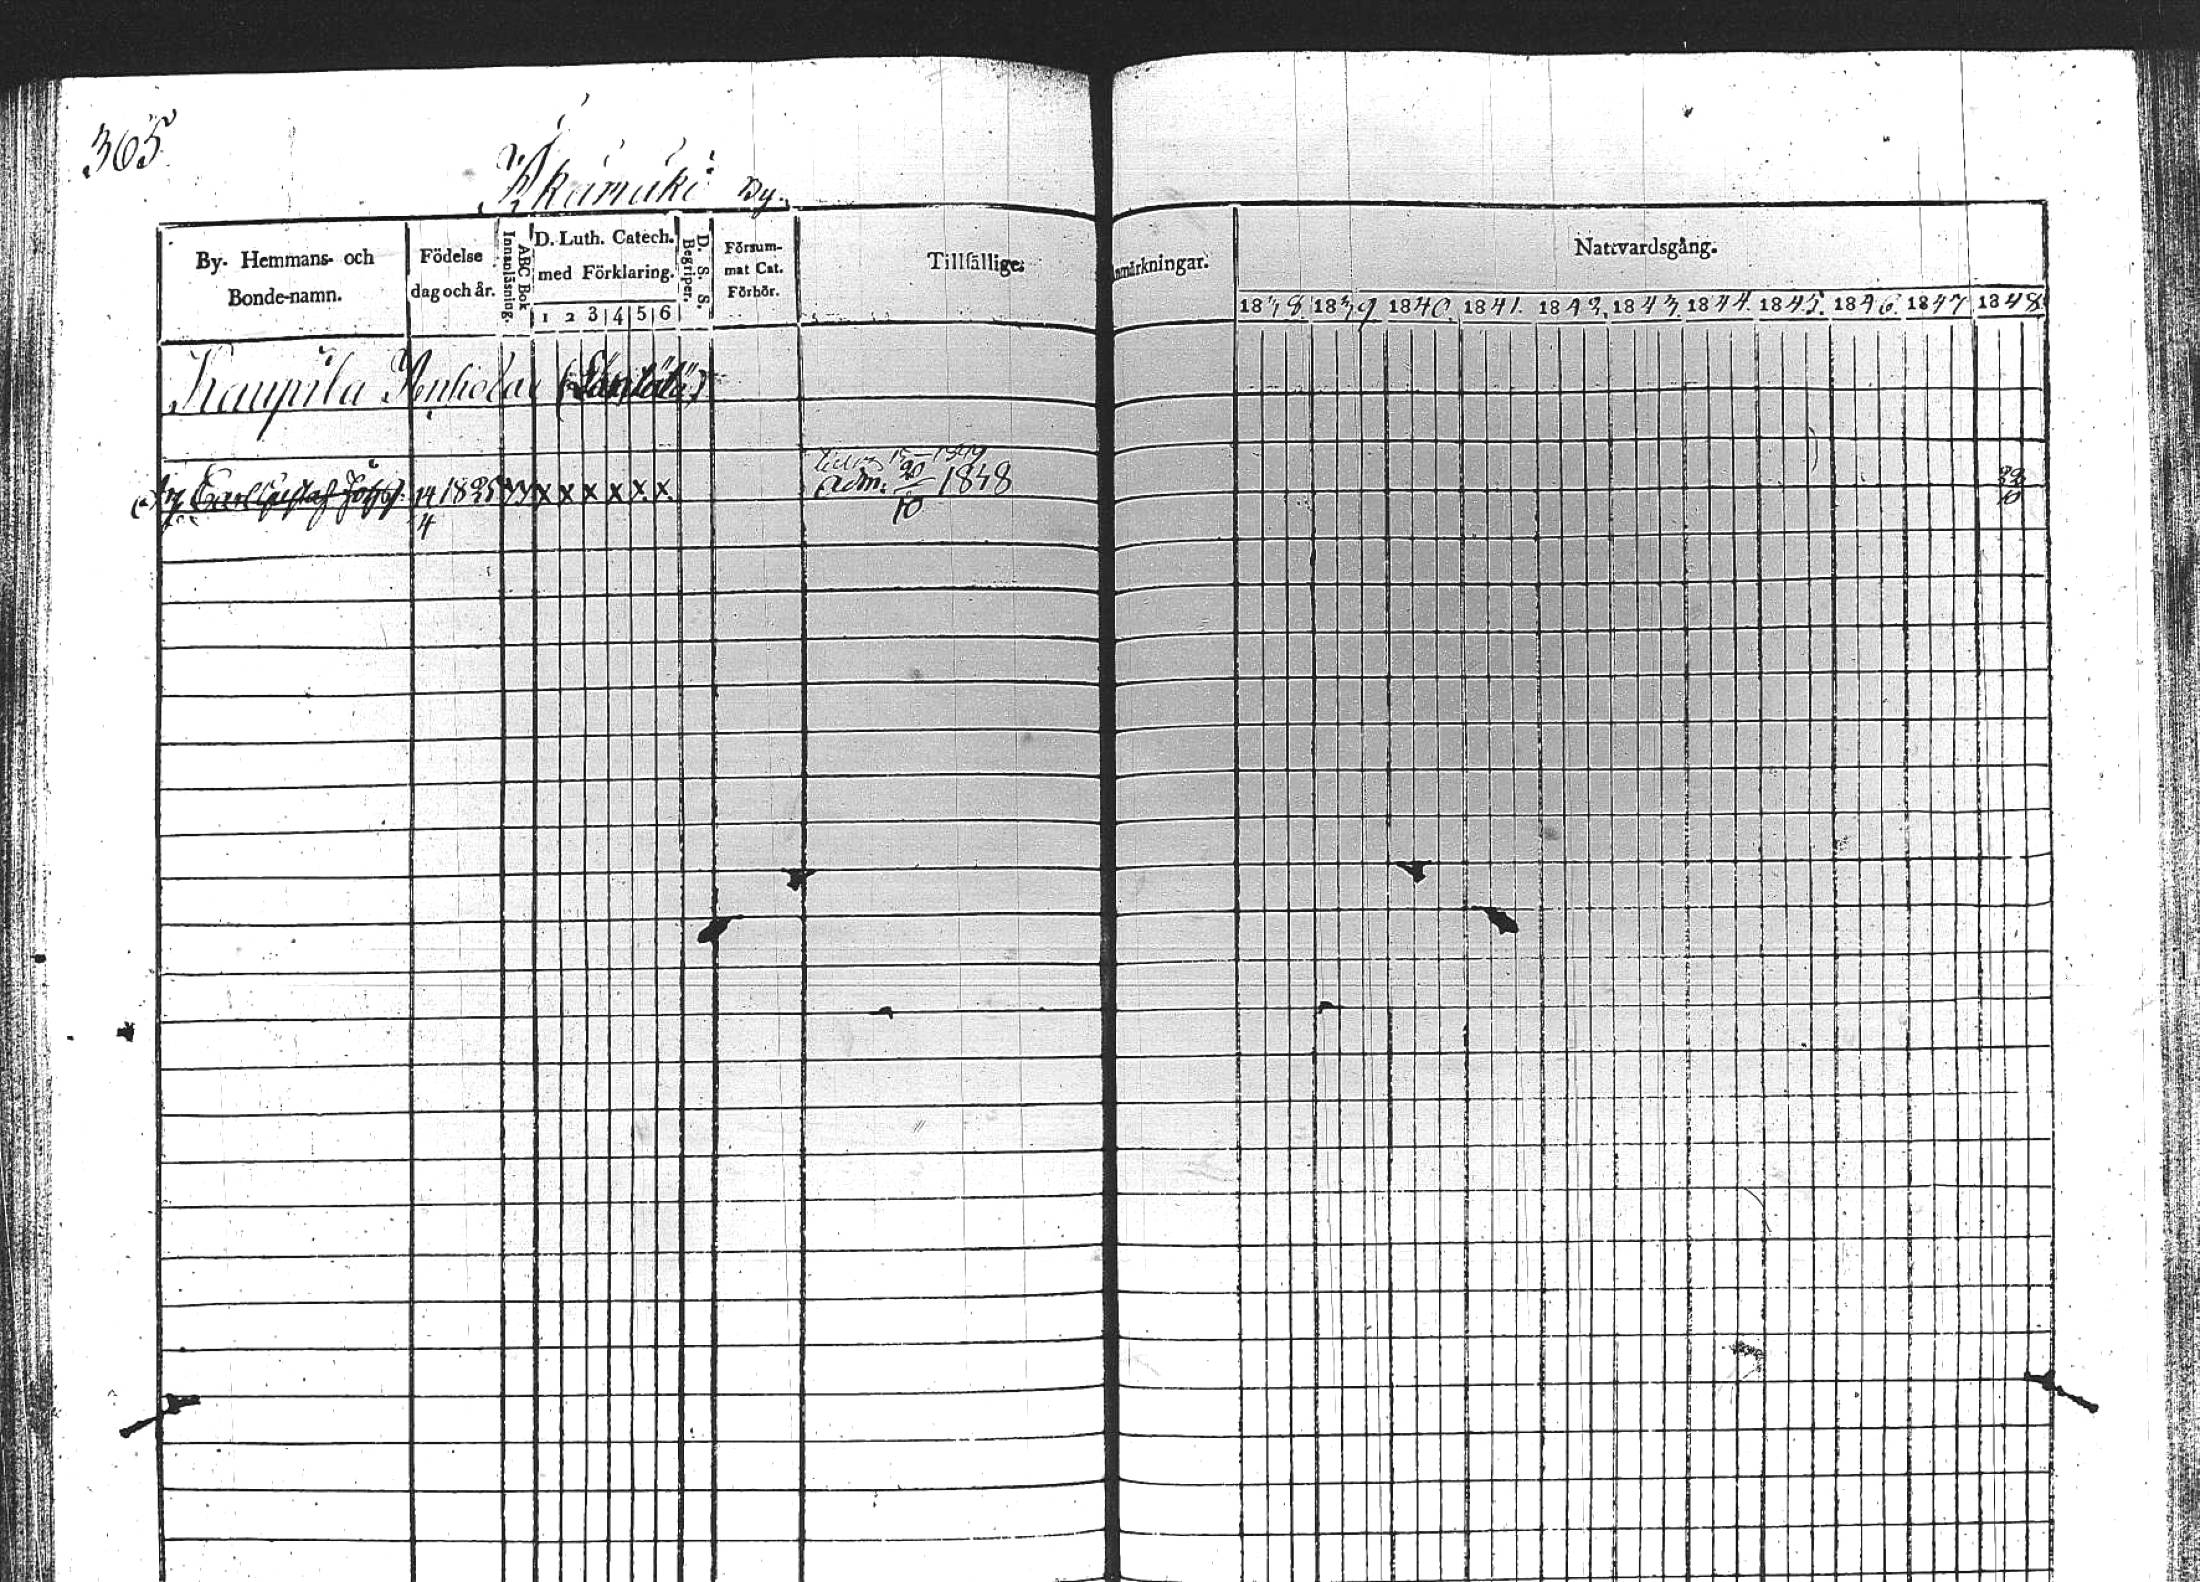 365
Äkämäki By.
By- Hemmans- och Bonde-namn.
Födelse dag och år.
Innanläsning.
ABC Bok
D. Luth. Catech. med Förklaring.
1 2 3 4 5 6
D. S. S. Begriper.
Försum-
mat Cat.
Förhör.
Tillfällige
nmärkningar.
Nattvardsgång.
1838. 1839 1840. 1841. 1842. 1843. 1844. 1845. 1846. 1847 1848
Kaupila
Carl Gustaf 14/4 1825 x x x x x x
15 1849
adm. 20/10 1848
22/10